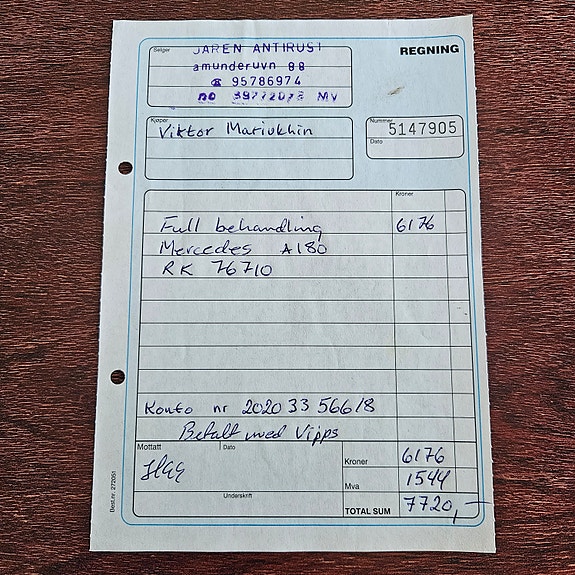 REGNING
Selger
JÆREN ANTIRUST
amunderuvn 88
☎ 95786974
NO 39772073 MV
Kjøper
Viktor Mariukhin
Nummer 5147905
Dato
Kroner
Full behandling 6176
Mercedes A180
RK 76710
Konto nr 2020 33 56618
Betalt med Vipps
Mottatt
Dato
Underskrift
Kroner 6176
Mva 1544
TOTAL SUM 7720,-
Best.nr. 272051